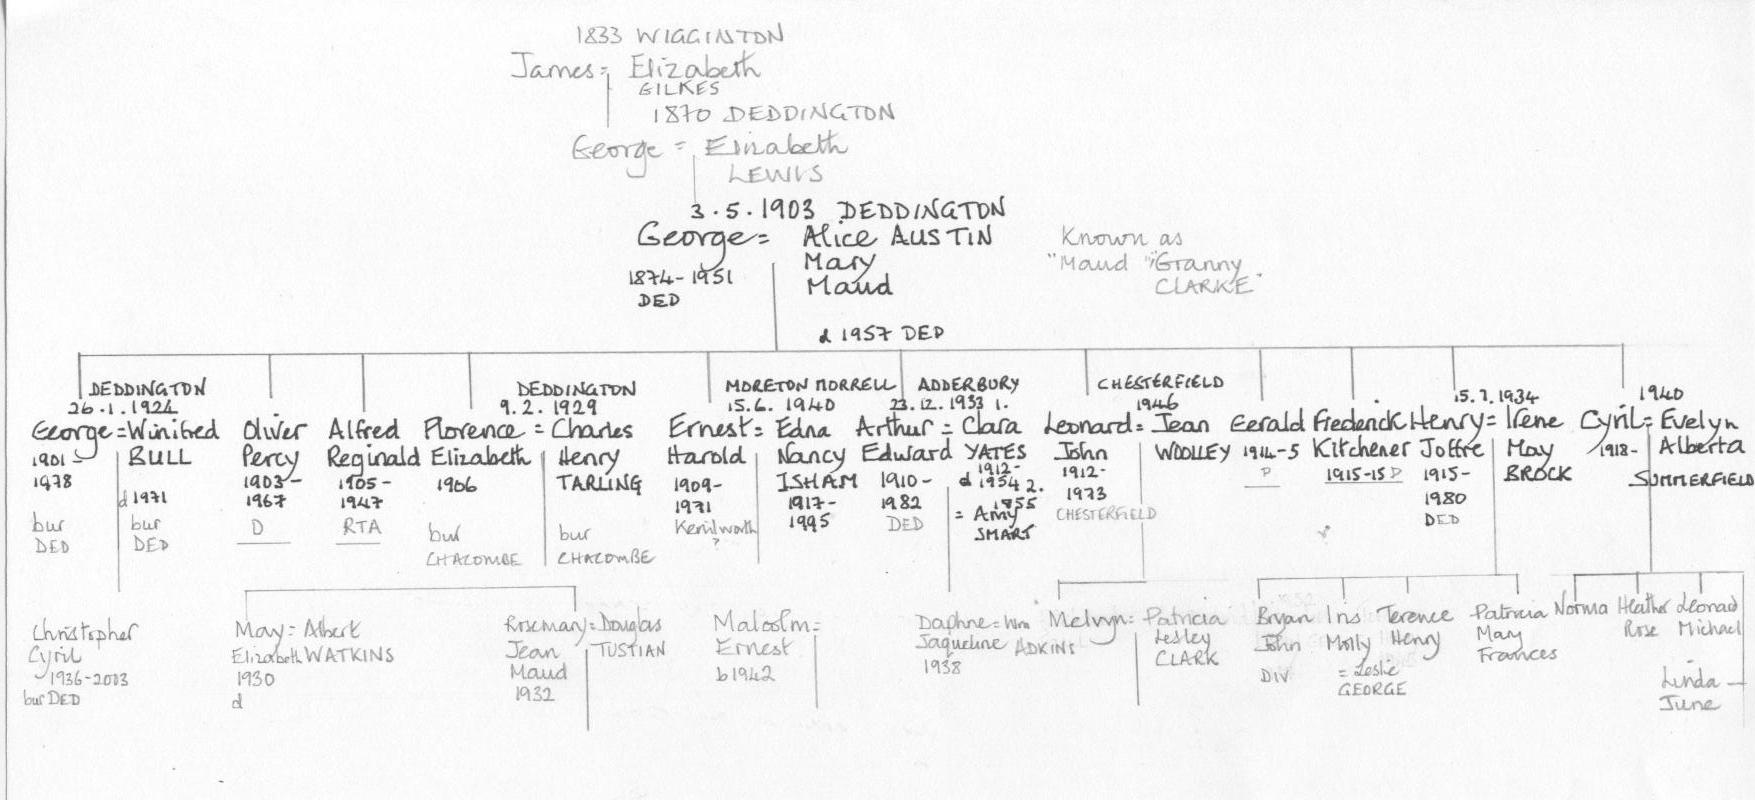 1833 WIGGINTON
James = Elizabeth
GILKES
1870 DEDDINGTON
George = Elizabeth
LEWIS
3.5.1903 DEDDINGTON
George = Alice AUSTIN
Mary
Maud
1874-1951
DED
Known as
"Maud", "Granny
CLARKE.
d 1957 DED
DEDDINGTON
26.1.1924
George = Winifred
BULL
1901-
1978
d 1971
bur
DED
bur
DED
Oliver
Percy
1903-
1967
D
Alfred
Reginald
1905-
1947
RTA
DEDDINGTON
9.2.1929
Florence = Charles
Elizabeth Henry
1906 TARLING
bur
CHACOMBE
bur
CHACOMBE
MORETON MORRELL
15.6.1940
Ernest = Edna
Harold Nancy
1909- ISHAM
1971 1917-
Kenilworth 1995
?
ADDERBURY
23.12.1933 1.
Arthur = Clara
Edward YATES
1910- 1912-
1982 d 1954 2.
DED 1955
= Amy
SMART
CHESTERFIELD
1946
Leonard = Jean
John WOOLLEY
1912-
1973
CHESTERFIELD
Gerald
1914-5
D
Frederick
Kitchener
1915-15 D
15.7.1934
Henry = Irene
Joffre May
1915- BROCK
1980
DED
1940
Cyril = Evelyn
1918- Alberta
SUMMERFIELD
Christopher
Cyril
1936-2003
bur DED
May = Albert
Elizabeth WATKINS
1930
d
Rosemary = Douglas
Jean TUSTIAN
Maud
1932
Malcolm =
Ernest
b 1942
Daphne = Wm
Jaqueline ADKINS
1938
Melvyn = Patricia
Lesley
CLARK
Bryan
John
DIV
Iris
Molly
= Leslie
GEORGE
Terence
Henry
Patricia
Mary
Frances
Norma
Heather
Rose
Leonard
Michael
Linda
June